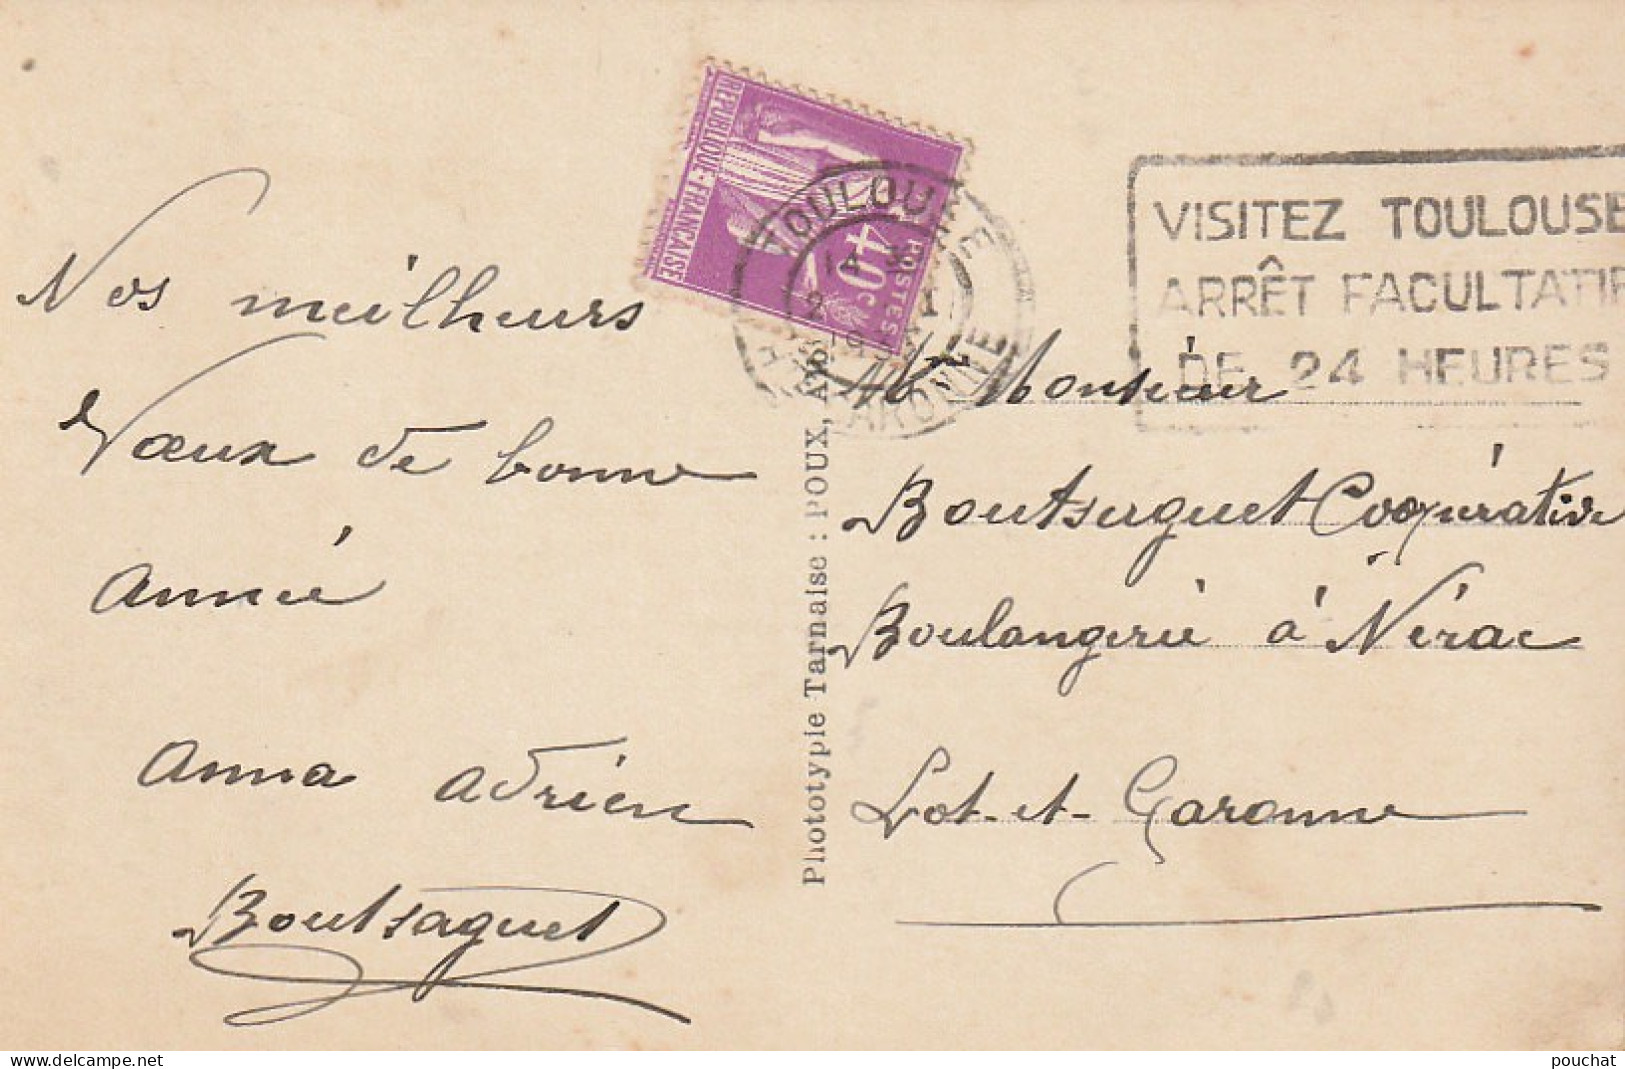 Nos meilleurs
Vœux de bonne
année
anna adrien
Boutsaguet
Phototypie Tarnaise : POUX,
RÉPUBLIQUE-FRANÇAISE
POSTES
40c
TOULOUSE
GARONNE
VISITEZ TOULOUSE
ARRÊT FACULTATIF
DE 24 HEURES
Monsieur
Boutsaguet Coopérative
Boulangerie à Nérac
Lot-et-Garonne
www.delcampe.net
pouchat